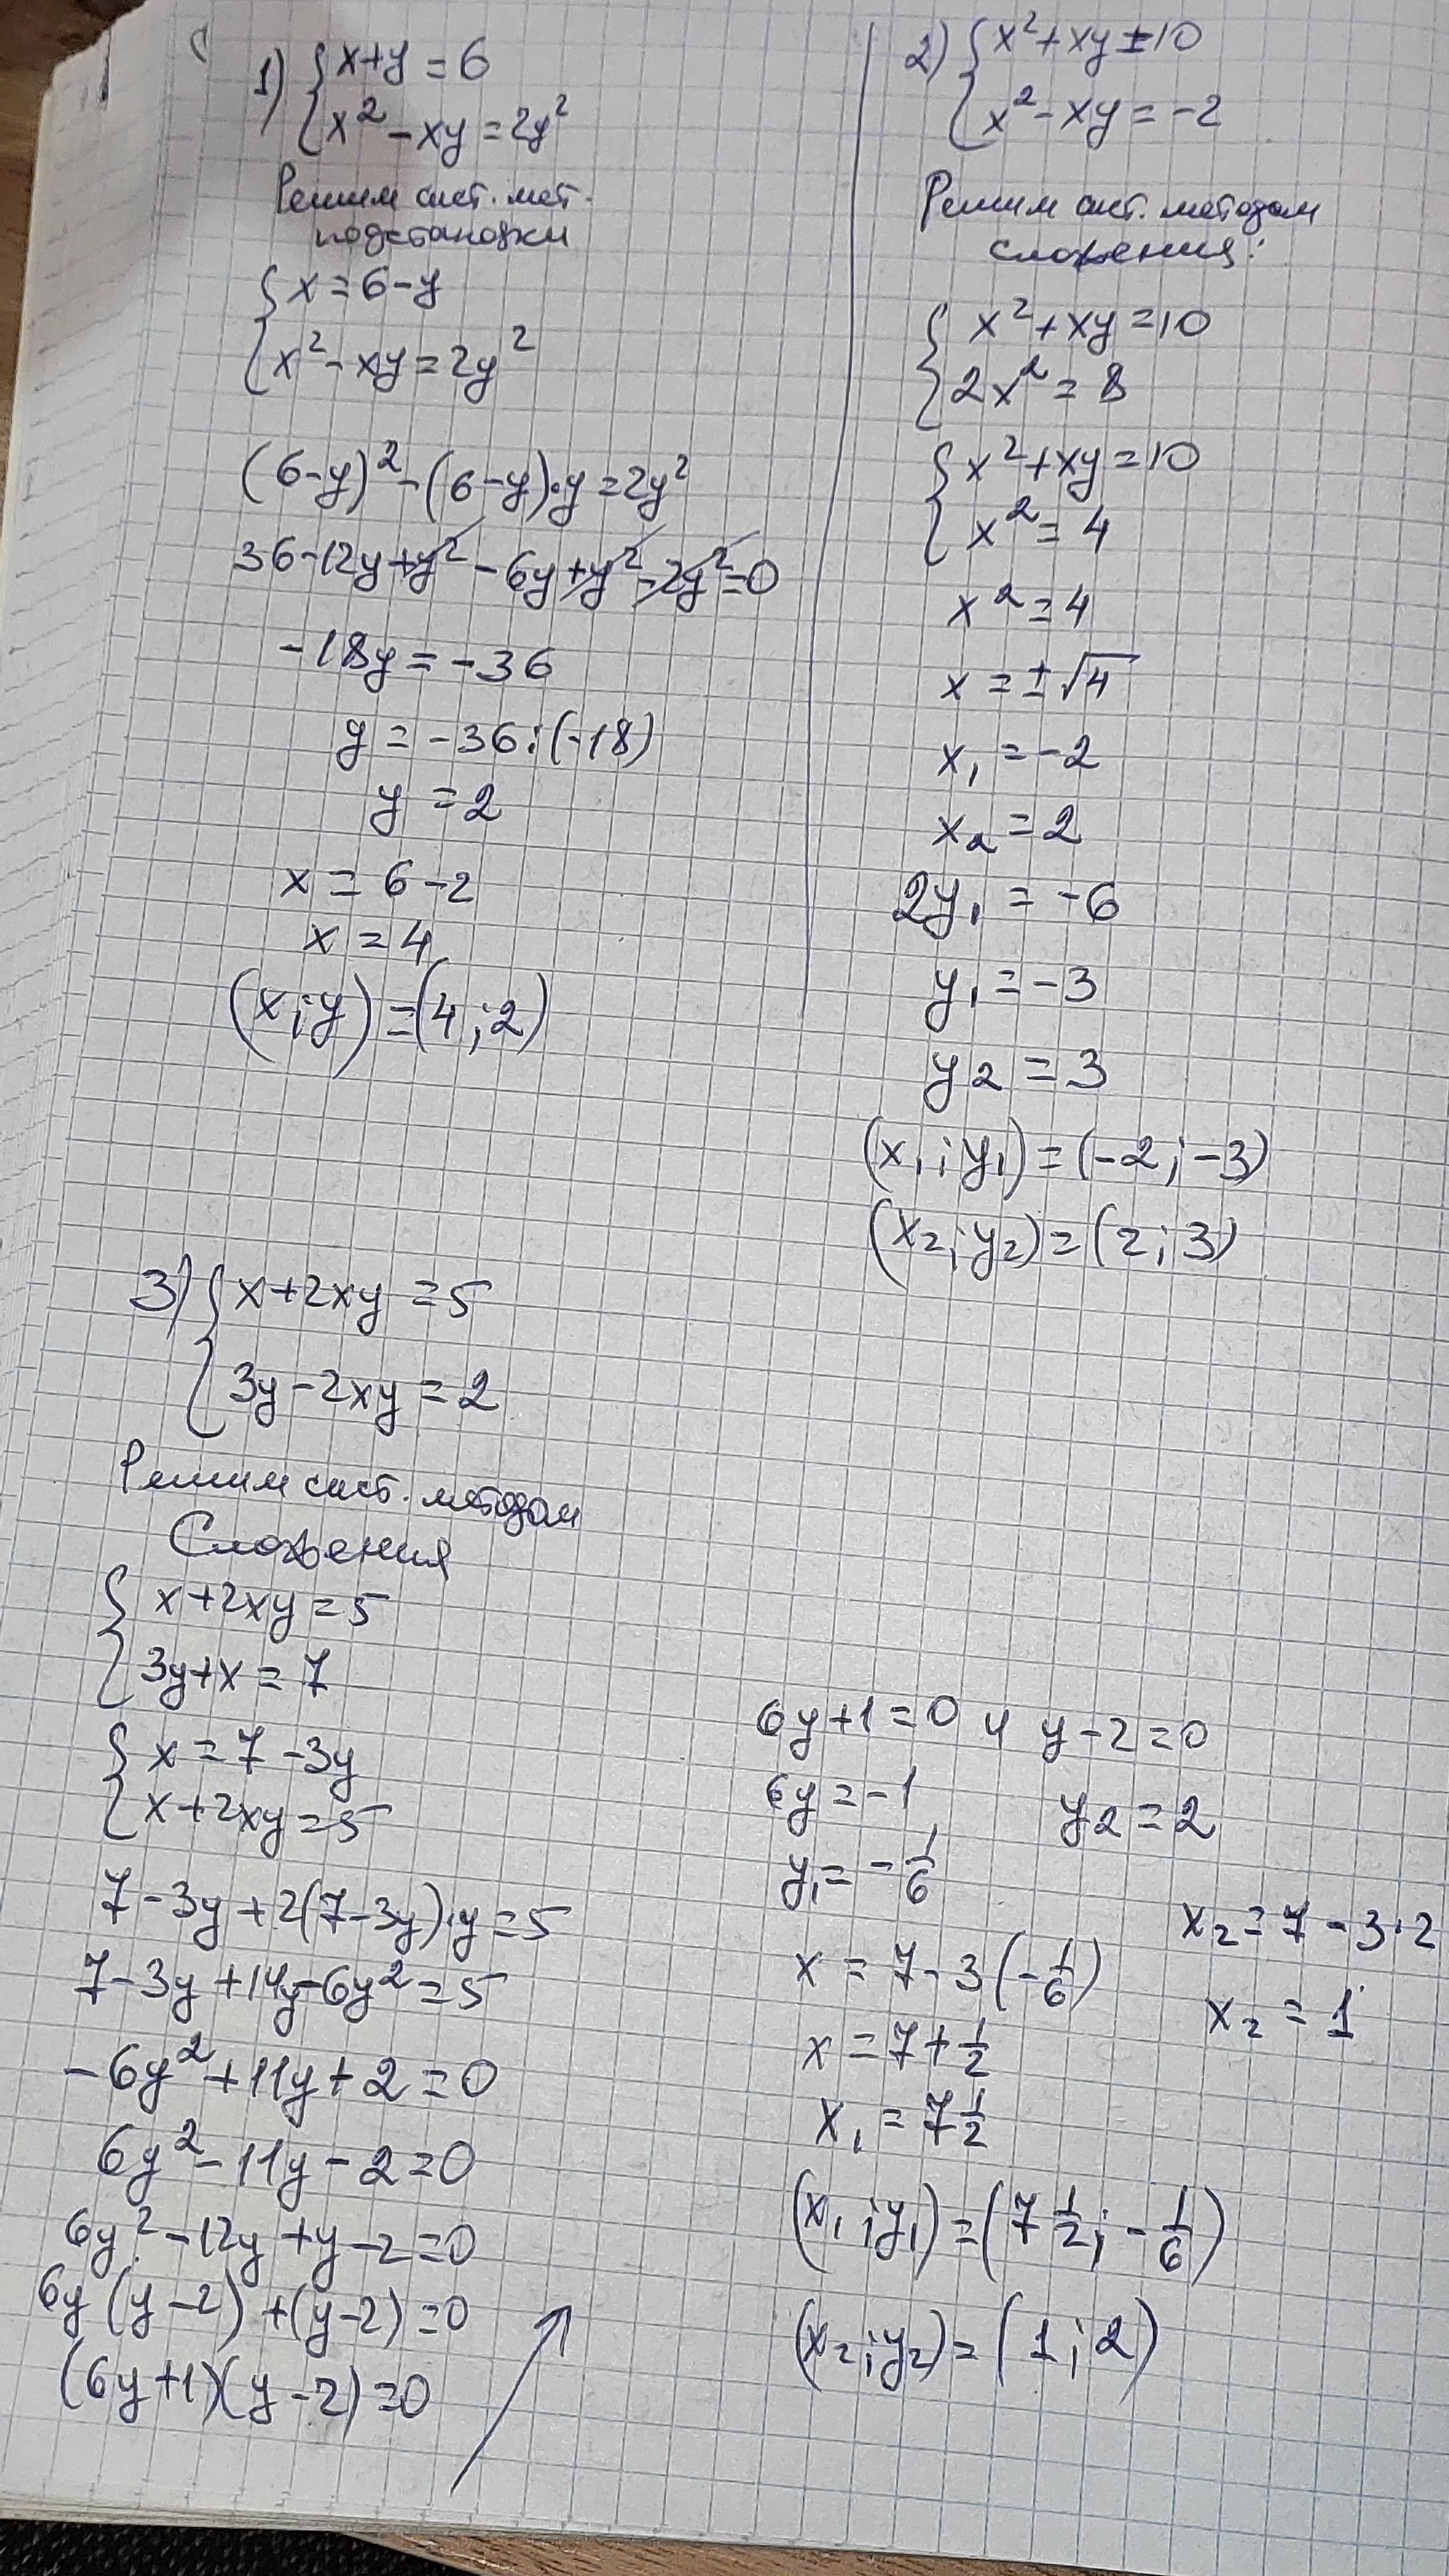 1) { x+y = 6
x² - xy = 2y²
Решим сист. мет.
подстановки
{ x = 6-y
x² - xy = 2y²
(6-y)² - (6-y)·y = 2y²
36-12y+y²-6y+y²-2y²=0
-18y = -36
y = -36:(-18)
y = 2
x = 6-2
x = 4
(x;y) = (4;2)
2) { x²+xy = 10
x²-xy = -2
Решим сист. методом
сложения:
{ x²+xy = 10
2x² = 8
{ x²+xy = 10
x² = 4
x² = 4
x = ±√4
x₁ = -2
x₂ = 2
2y₁ = -6
y₁ = -3
y₂ = 3
(x₁;y₁) = (-2;-3)
(x₂;y₂) = (2;3)
3) { x+2xy = 5
3y-2xy = 2
Решим сист. методом
Сложения
{ x+2xy = 5
3y+x = 7
{ x = 7-3y
x+2xy = 5
7-3y+2(7-3y)·y = 5
7-3y+14y-6y² = 5
-6y²+11y+2 = 0
6y²-11y-2 = 0
6y²-12y+y-2 = 0
6y(y-2)+(y-2) = 0
(6y+1)(y-2) = 0
6y+1 = 0 и y-2 = 0
6y = -1
y₂ = 2
y₁ = -1/6
x₂ = 7-3·2
x = 7-3(-1/6)
x₂ = 1
x = 7+1/2
x₁ = 7 1/2
(x₁;y₁) = (7 1/2; -1/6)
(x₂;y₂) = (1;2)